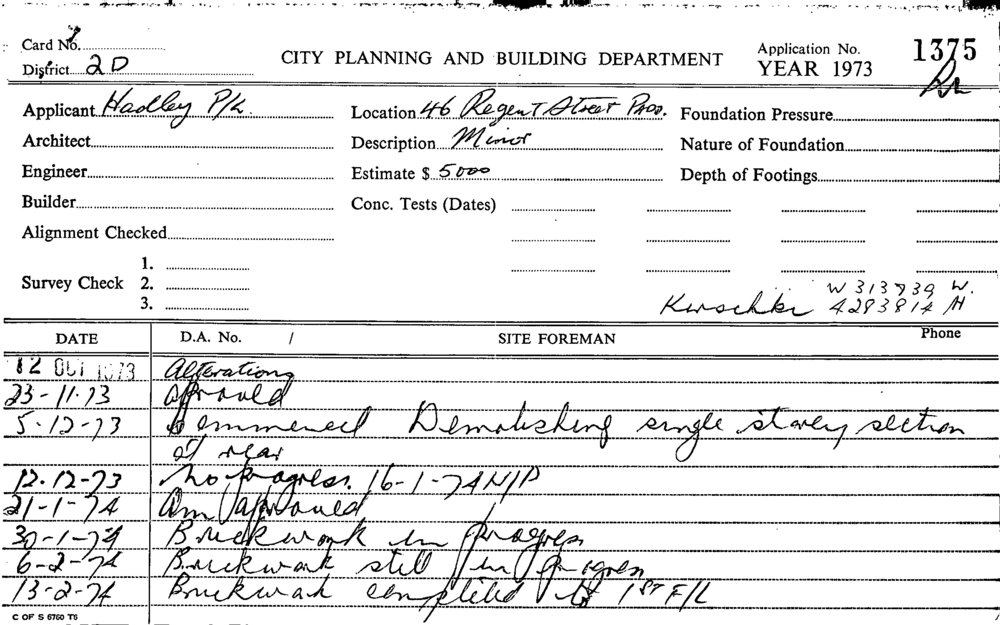 Card No. 1
District 2D
CITY PLANNING AND BUILDING DEPARTMENT
Application No. 1375
YEAR 1973
Applicant Hadley P/L
Location 46 Regent Street Padd.
Foundation Pressure
Architect
Description Minor
Nature of Foundation
Engineer
Estimate $ 5000
Depth of Footings
Builder
Conc. Tests (Dates)
Alignment Checked
Survey Check
1.
2.
3.
W 313939 W.
Kerschke 4283814 AH
DATE D.A. No. / SITE FOREMAN Phone
12 OCT 1973 Alterations
23-11-73 approved
5-12-73 Commenced Demolishing single storey section
at rear
12-12-73 No progress. 16-1-74 N/P
21-1-74 Am approved
30-1-74 Brickwork in progress
6-2-74 Brickwork still in progress
13-2-74 Brickwork completed to 1ST F/L
C OF S 6760 T6